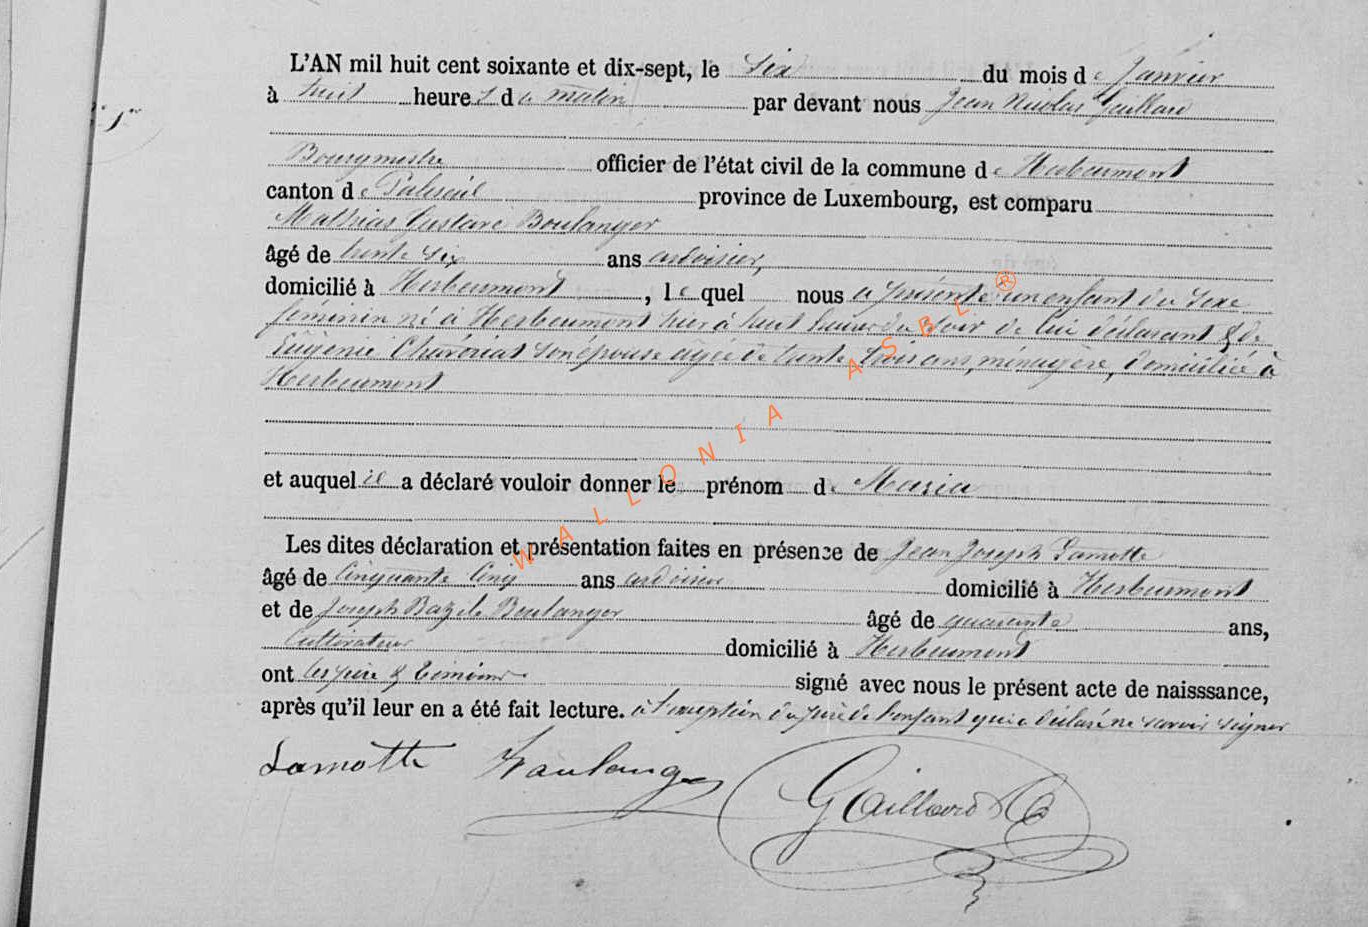 L'AN mil huit cent soixante et dix-sept, le six du mois de Janvier
1er
à huit heures du matin par devant nous Jean Nicolas Gaillard
Bourgmestre officier de l'état civil de la commune de Herbeumont
canton de Paliseul province de Luxembourg, est comparu
Mathias Gustave Boulanger
âgé de trente six ans ardoisier,
domicilié à Herbeumont, lequel nous a présenté un enfant du sexe
féminin né à Herbeumont hier à huit heures du soir de lui déclarant & de
Eugénie son épouse agée de trente trois ans, ménagère, domiciliée à
Herbeumont
et auquel il a déclaré vouloir donner le prénom de Maria
Les dites déclaration et présentation faites en présence de Jean Joseph Lamotte
âgé de cinquante cinq ans ardoisier domicilié à Herbeumont
et de Joseph Bazile Boulanger âgé de quarante ans,
Cultivateur domicilié à Herbeumont
ont les père & témoins signé avec nous le présent acte de naisssance,
après qu'il leur en a été fait lecture. à l'exception du père de l'enfant qui a déclaré ne savoir signer
Lamotte Boulanger Gaillard
WALLONIA ASBL ®